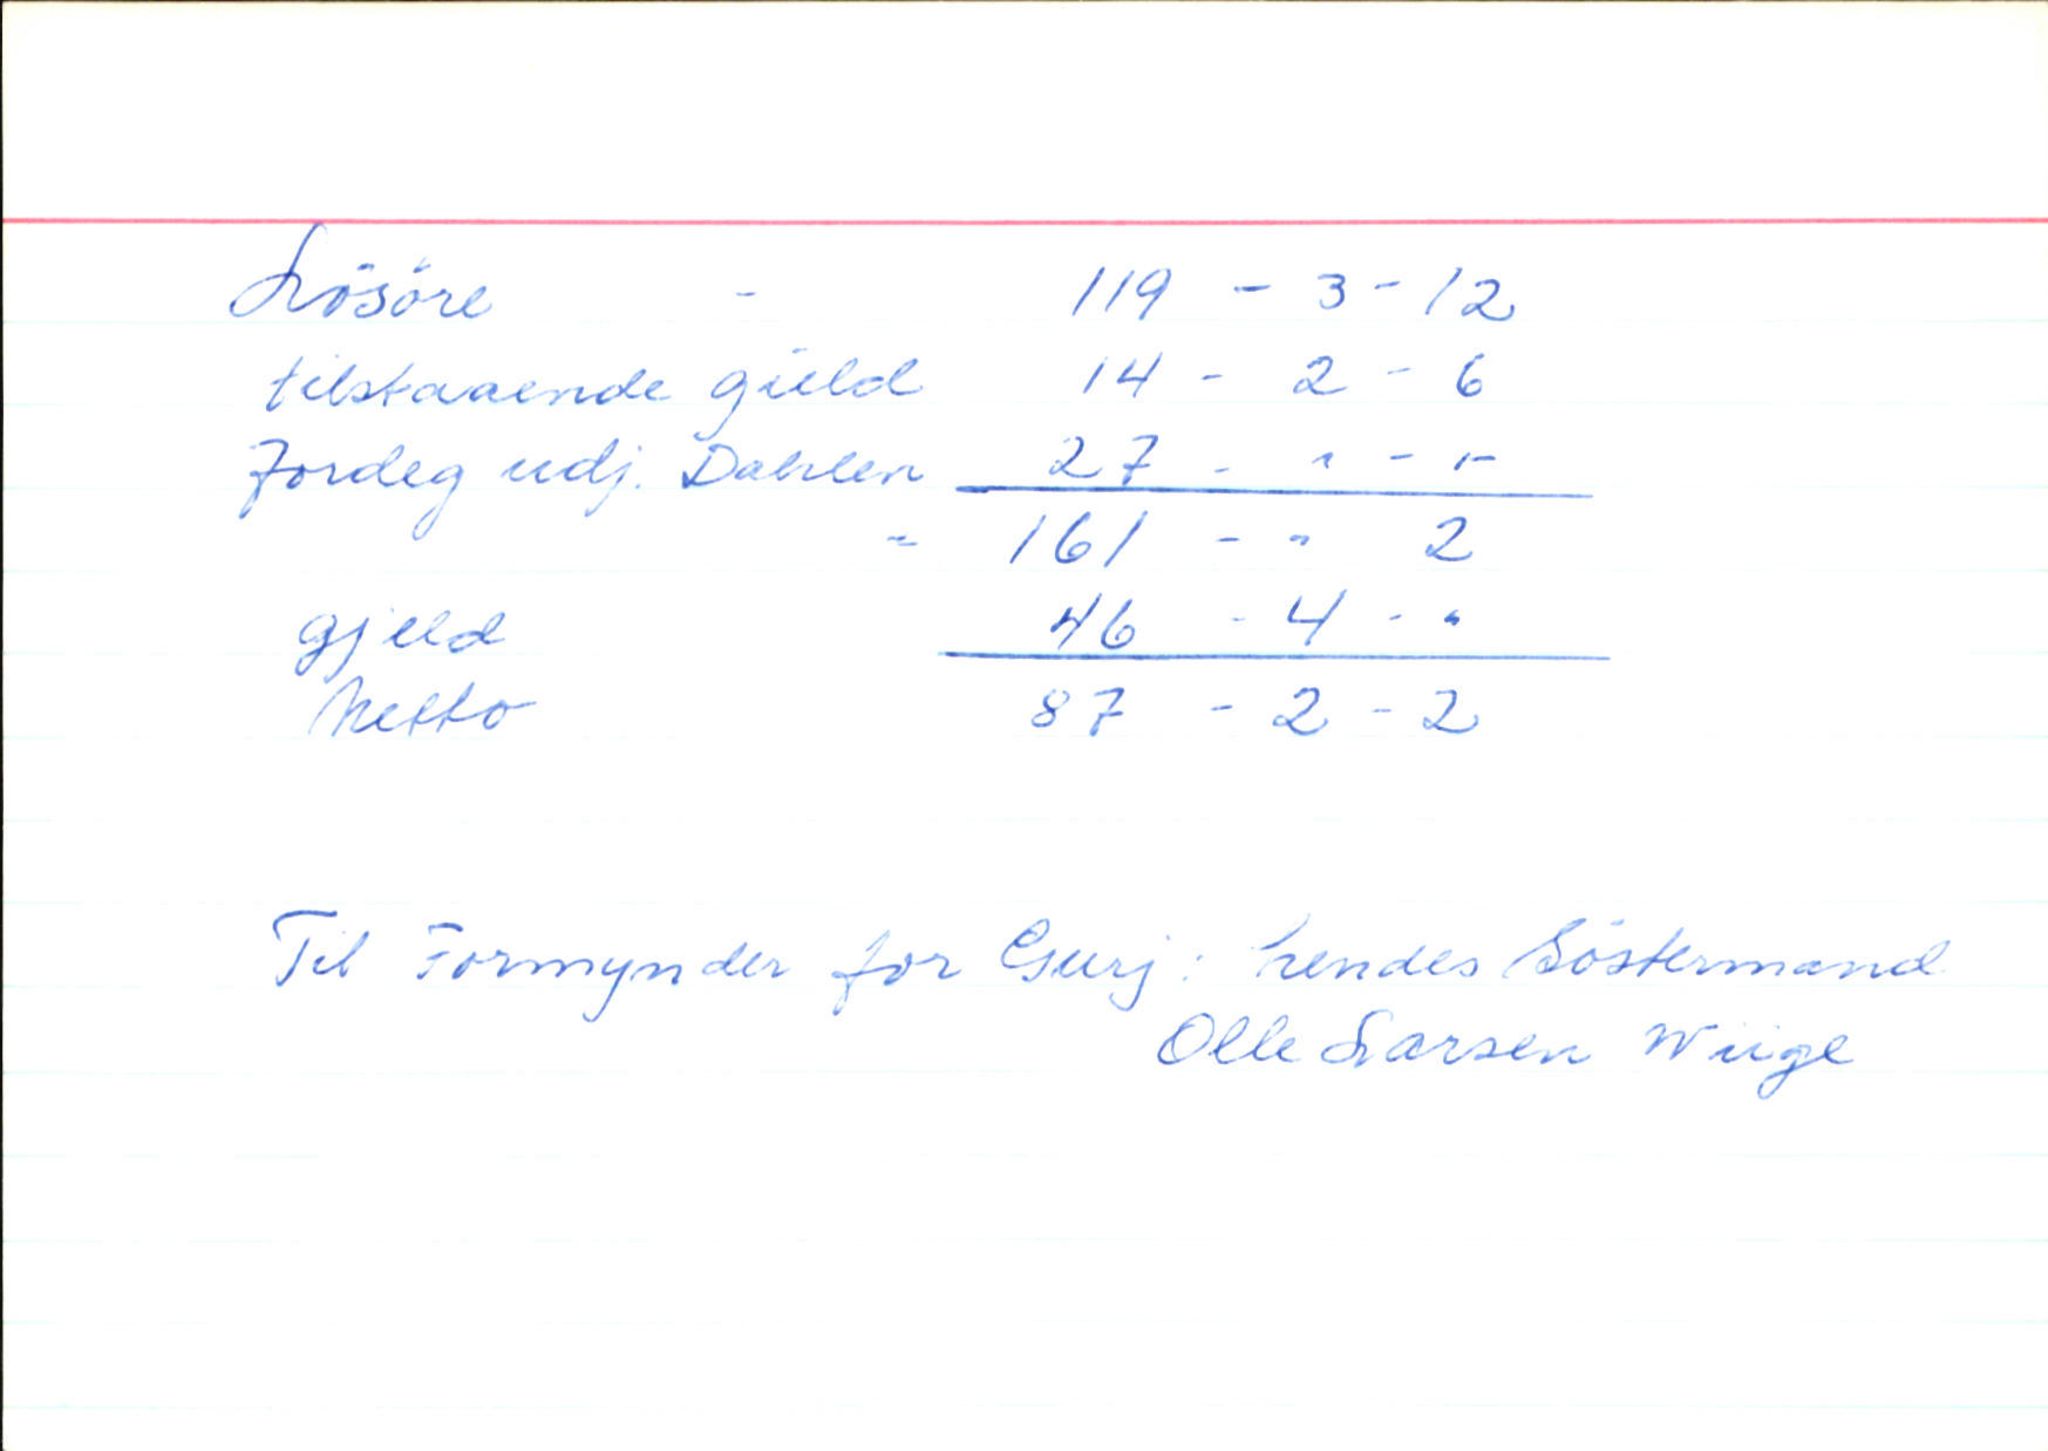 Lösöre - 119 - 3 - 12
tilstaaende gield 14 - 2 - 6
Jordeg udj. Dahlen 27 - " - "-
" 161 - " 2
gjeld 46 - 4 - "
Netto 87 - 2 - 2
Til Formynder for Gurj: hendes Söstermand
Olle Larsen Wiige